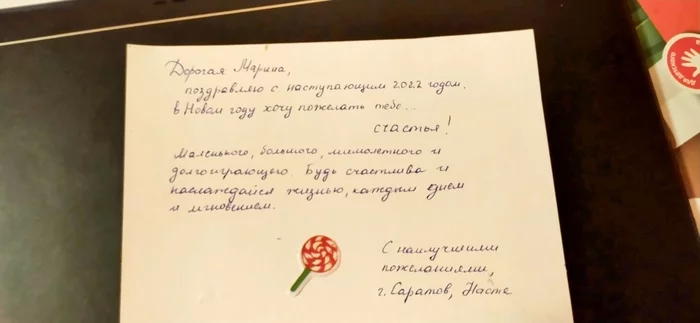 Дорогая Марина,
поздравляю с наступающим 2022 годом.
в Новом году хочу пожелать тебе...
счастья!
Маленького, большого, мимолетного и
долгоиграющего. Будь счастлива и
наслаждайся жизнью, каждым днем
и мгновением.
С наилучшими
пожеланиями,
г. Саратов, Настя